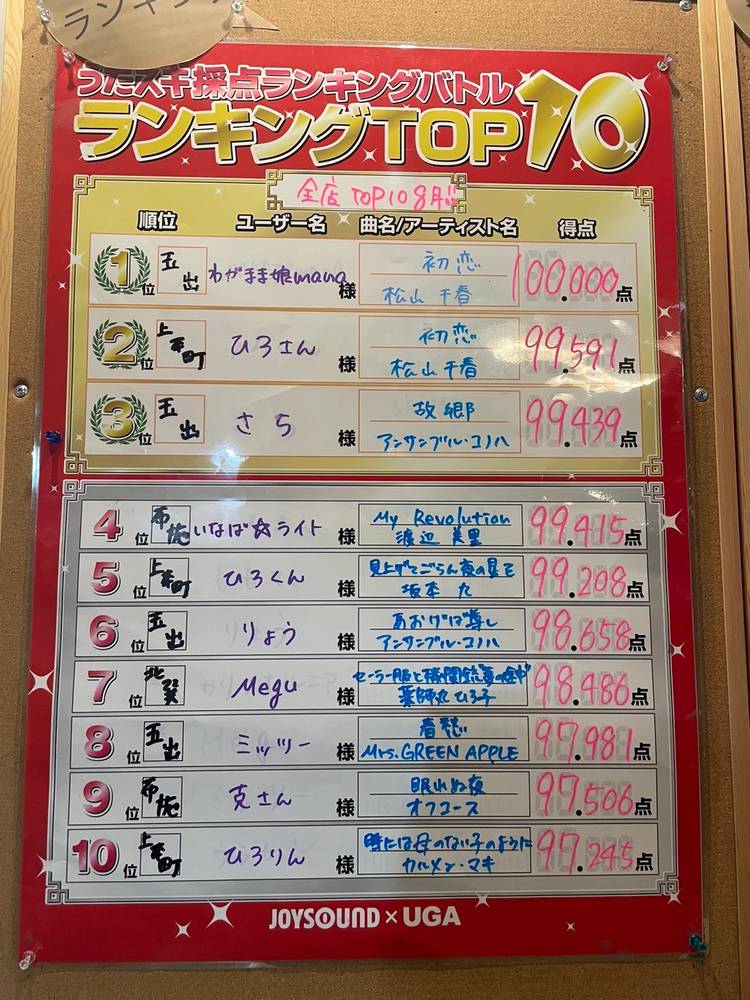 ランキング
うたスキ採点ランキングバトル
ランキングTOP10
全店 TOP10 8月!!
順位 ユーザー名 曲名/アーティスト名 得点
1位 玉出 わがまま娘mana様 初恋 100.000点
松山千春
2位 上本町 ひろさん様 初恋 99.591点
松山千春
3位 玉出 さち様 故郷 99.439点
アンサンブル・コノハ
4位 布施 いなば☆ライト様 My Revolution 99.415点
渡辺美里
5位 上本町 ひろくん様 見上げてごらん夜の星を 99.208点
坂本九
6位 玉出 りょう様 あおげば尊し 98.658点
アンサンブル・コノハ
7位 北巽 Megu様 セーラー服と機関銃 98.486点
薬師丸ひろ子
8位 玉出 ミッツー様 春愁 97.981点
Mrs.GREEN APPLE
9位 布施 克さん様 眠れぬ夜 97.506点
オフコース
10位 上本町 ひろりん様 時には母のない子のように 97.245点
カルメン・マキ
JOYSOUND×UGA